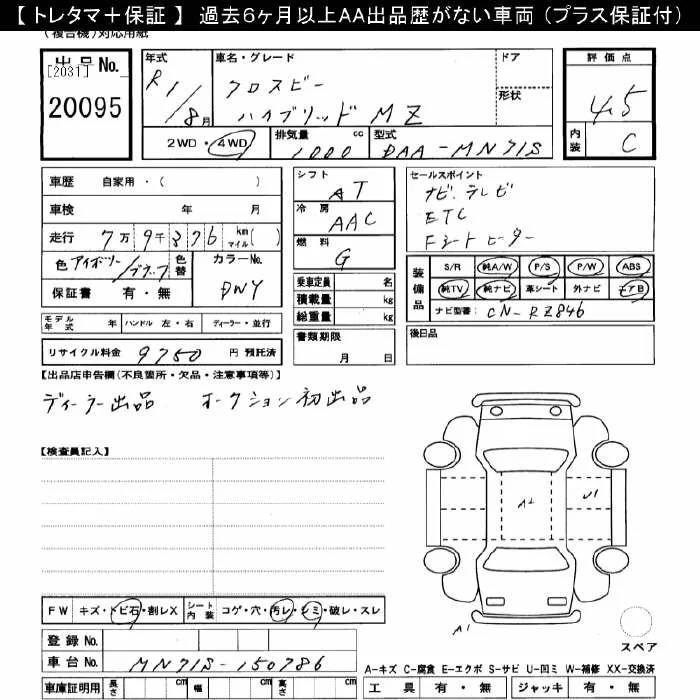 【 トレタマ＋保証 】 過去6ヶ月以上AA出品歴がない車両（プラス保証付）
(複合機)対応用紙
出品No. [2031] 20095
年式 R1/8月
車名・グレード クロスビー ハイブリッド MZ
ドア
形状
2WD・4WD
排気量 1000 cc
型式 DAA-MN71S
評価点 4.5
内装 C
車歴 自家用・( )
車検 年 月
走行 7万9千376 km マイル( )
色 アイボリー/ブラック 色替 カラーNo. DWY
保証書 有・無
シフト AT
冷房 AAC
燃料 G
乗車定員 名
積載量 kg
総重量 kg
書類期限 月 日
セールスポイント
ナビ.テレビ
ETC
Fシートヒーター
装備品 S/R 純A/W P/S P/W ABS
純TV 純ナビ 革シート 外ナビ エアB
ナビ型番: CN-RZ846
後日品
モデル年式 年 ハンドル 左・右 ディーラー・並行
リサイクル料金 9750 円 預託済
【出品店申告欄(不良箇所・欠品・注意事項等)】
ディーラー出品 オークション初出品
【検査員記入】
A1
U1
A1
スペア
FW キズ・トビ石・割レX シート内装 コゲ・穴・汚レ・シミ・破レ・スレ
登録No.
車台No. MN71S-150786
A-キズ C-腐食 E-エクボ S-サビ U-凹ミ W-補修 XX-交換済
車庫証明用 長さ cm 幅 cm 高さ cm
工具 有・無 ジャッキ 有・無